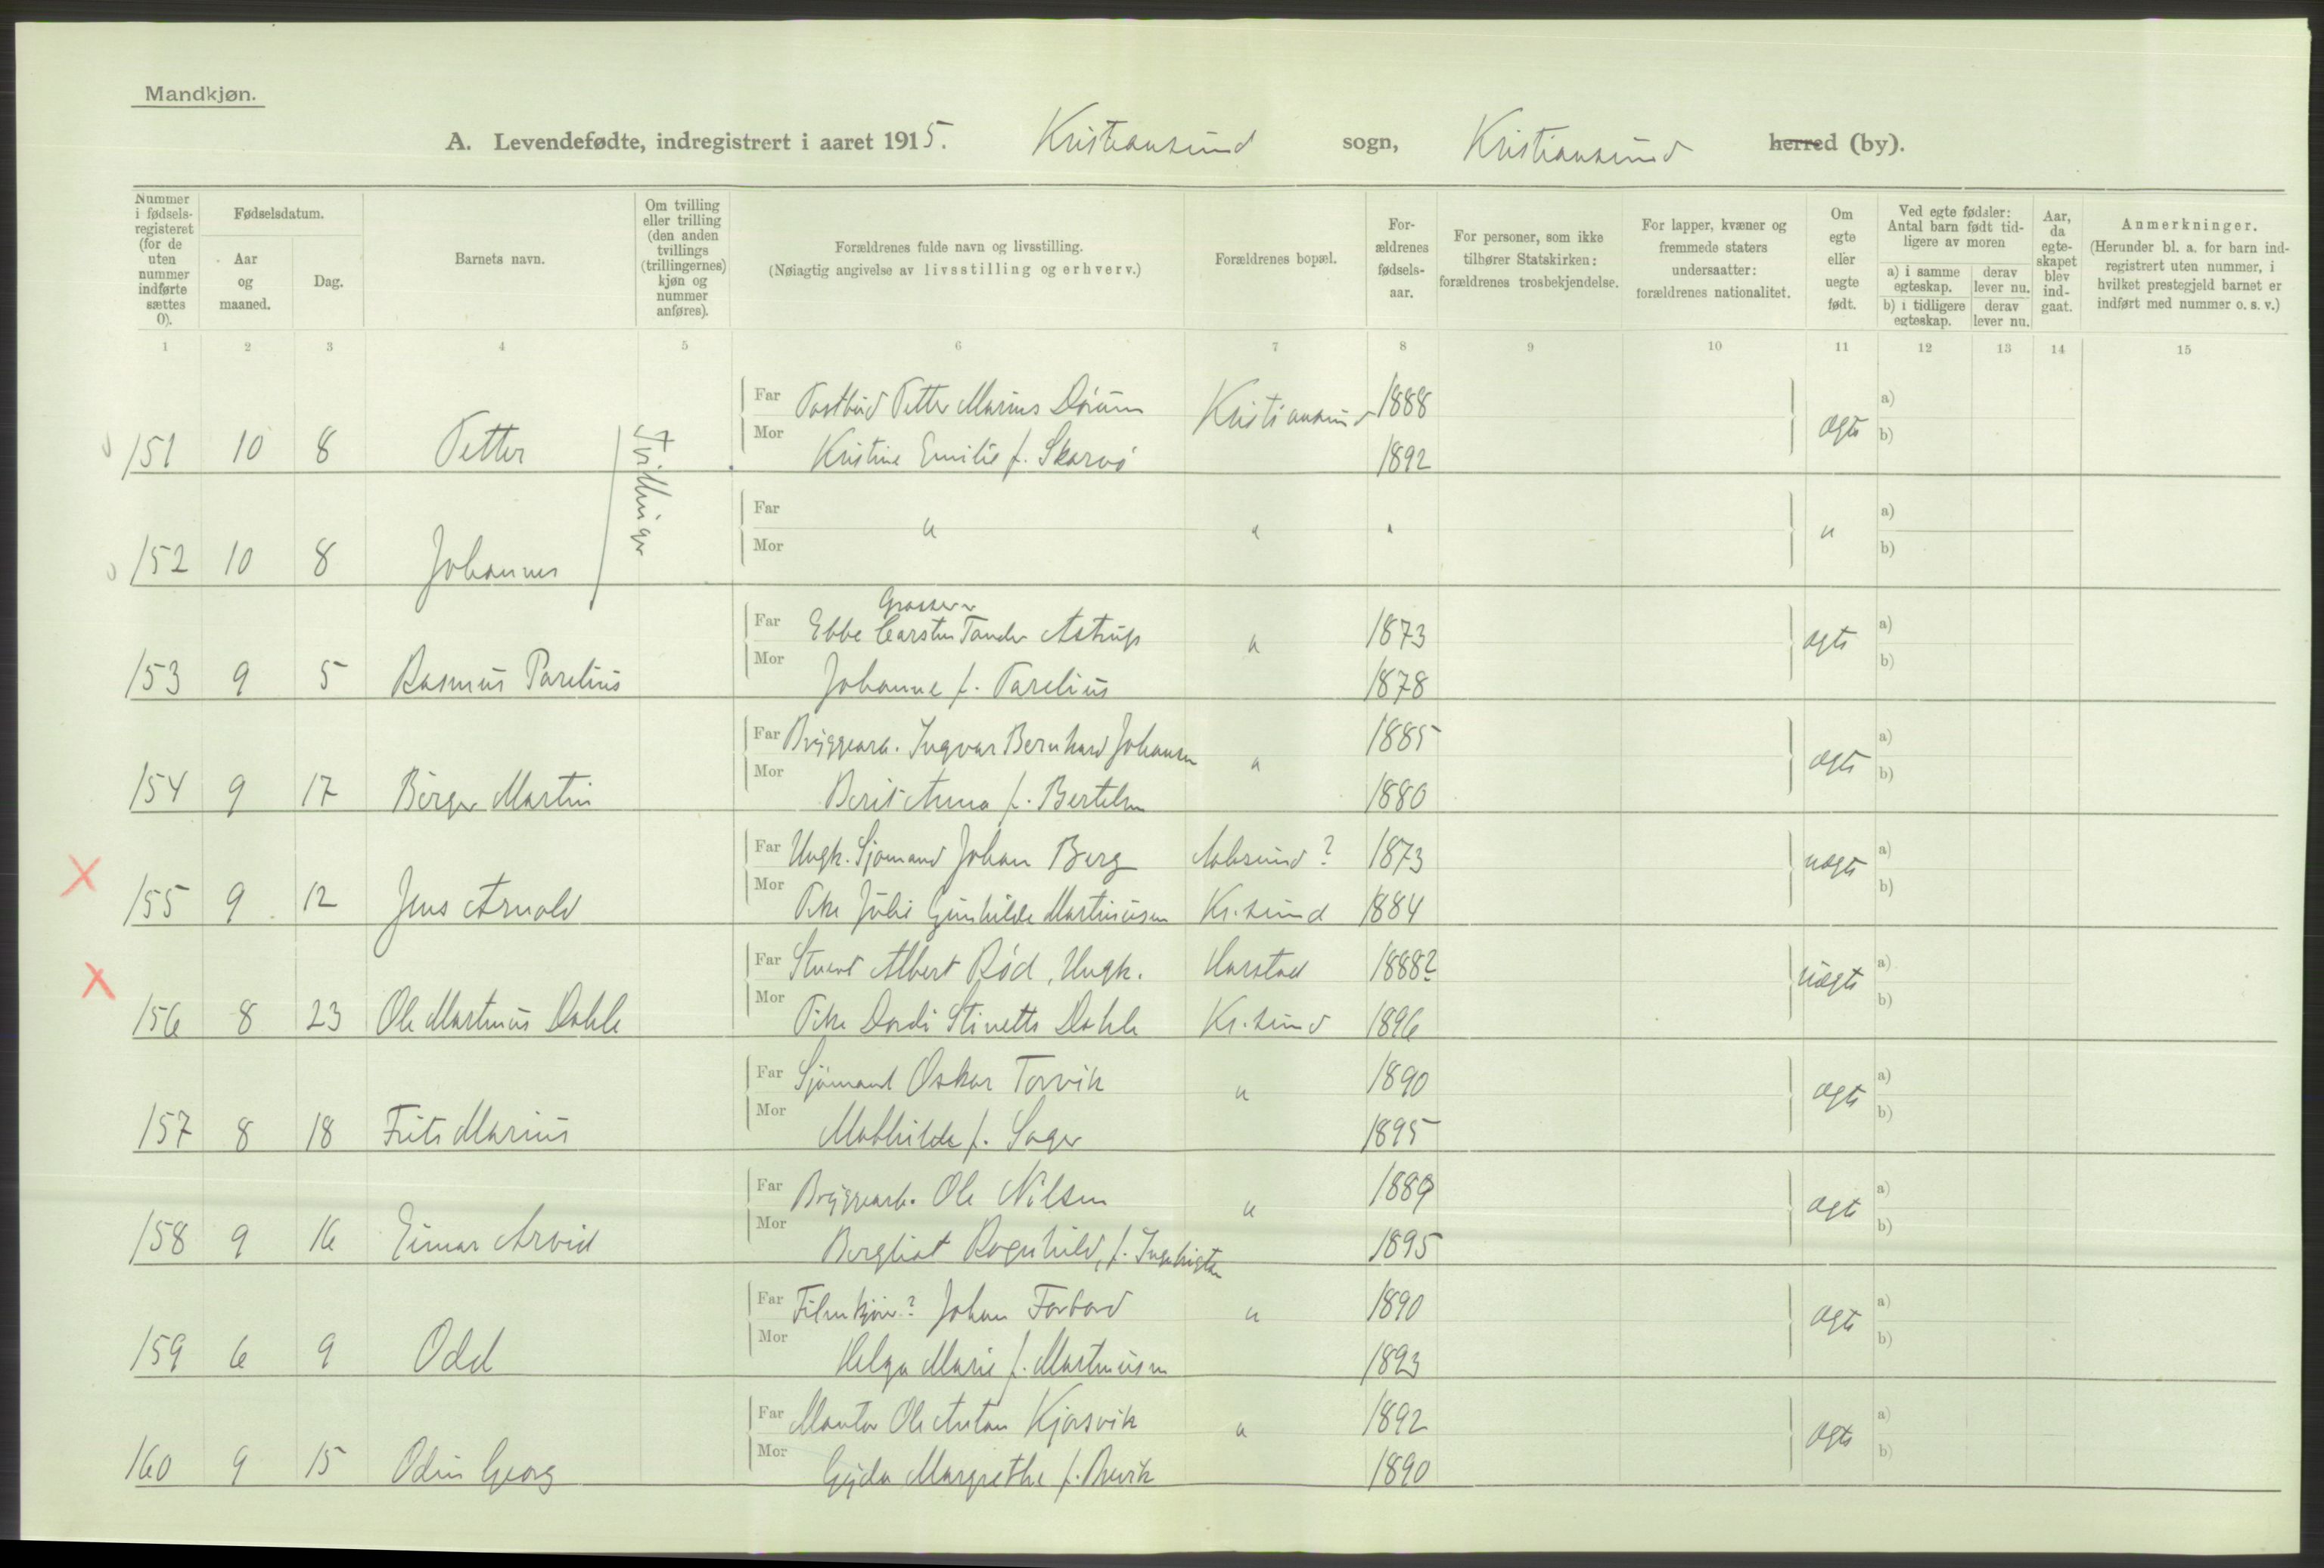 Mandkjøn.
A. Levendefødte, indregistrert i aaret 1915. Kristiansund sogn, Kristiansund herred (by).
Nummer i fødselsregisteret (for de uten nummer indførte sættes 0).
Fødselsdatum.
Aar og maaned.
Dag.
Barnets navn.
Om tvilling eller trilling (den anden tvillings (trillingernes) kjøn og nummer anføres).
Forældrenes fulde navn og livsstilling.
(Nøiagtig angivelse av livsstilling og erhverv.)
Forældrenes bopæl.
For-ældrenes fødsels-aar.
For personer, som ikke tilhører Statskirken: forældrenes trosbekjendelse.
For lapper, kvæner og fremmede staters undersaatter: forældrenes nationalitet.
Om egte eller uegte født.
Ved egte fødsler: Antal barn født tidligere av moren
a) i samme egteskap.
derav lever nu.
b) i tidligere egteskap.
derav lever nu.
Aar, da egteskapet blev indgaat.
Anmerkninger.
(Herunder bl. a. for barn indregistrert uten nummer, i hvilket prestegjeld barnet er indført med nummer o. s. v.)
1 2 3 4 5 6 7 8 9 10 11 12 13 14 15
Far Postbud Petter Marius Dørum Kristiansund 1888 a)
151 10 8 Petter Tvillinger Mor Kristine Emilie f. Skarvø 1892 ægte b)
Far " " " " a)
152 10 8 Johannes Mor b)
Grosserer
Far Ebbe Carsten Tander Astrup " 1873 ægte a)
153 9 5 Rasmus Parelius Mor Johanne f. Parelius 1878 b)
Far Bryggearb. Ingvar Bernhard Johansen " 1885 ægte a)
154 9 17 Birger Martin Mor Berit Anna f. Bertelsen 1880 b)
Far Ungk. Sjømand Johan Berg ? 1873 uægte a)
155 9 12 Jens Arnold Mor Pike Julie Gunhilde Martinusen Kr.sund 1884 b)
Far Stuert Albert Rød, Ungk. Harstad 1888? uægte a)
156 8 23 Ole Martinus Dahle Mor Pike Dordi Stinette Dahle Kr.sund 1896 b)
Far Sjømand Oskar Torvik " 1890 ægte a)
157 8 18 Frits Marius Mor Mathilde f. Sager 1895 b)
Far Bryggearb. Ole Nilsen " 1889 ægte a)
158 9 16 Einar Arvid Mor Bergliot Ragnhild, f. Ingebrigtsen 1895 b)
Far ? Johan Forbord " 1890 ægte a)
159 6 9 Odd Mor Helga Marie f. Martinusen 1893 b)
Far Montør Ole Anton Kjørsvik " 1892 ægte a)
160 9 15 Odin Georg Mor Gyda Margrethe f. Brevik 1890 b)